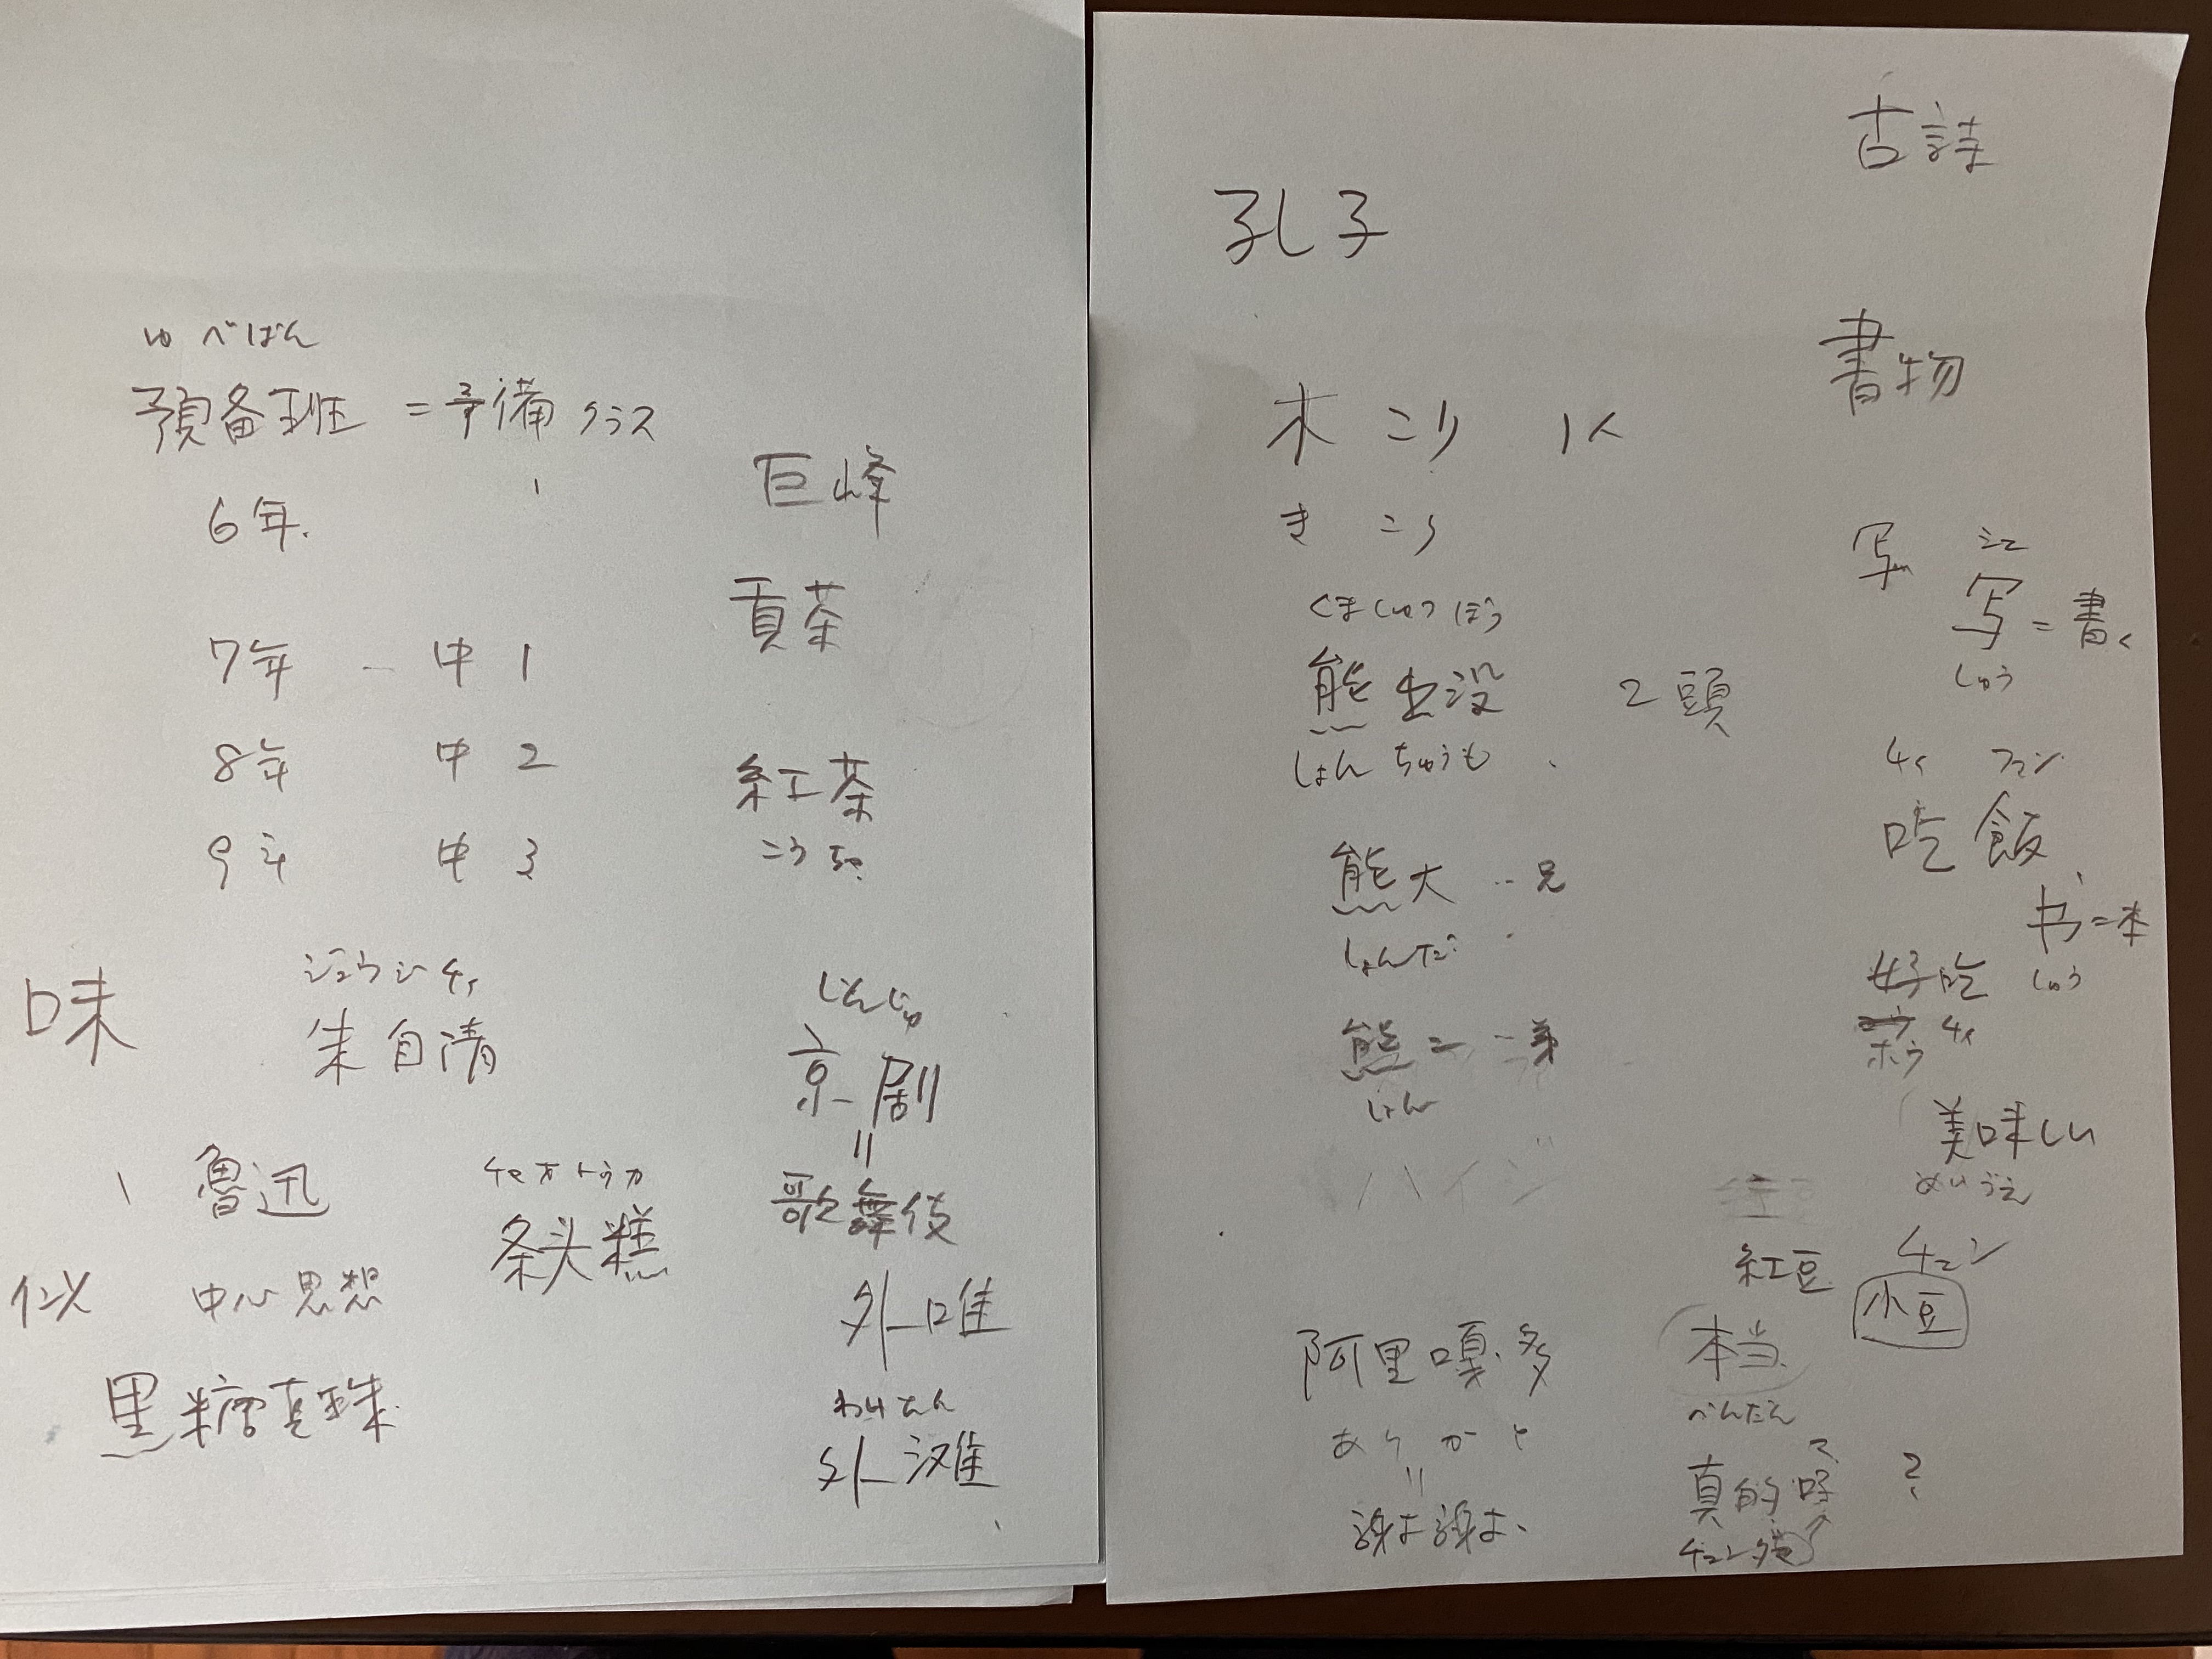 ゆ べ ばん
預备班 =予備クラス
6年.
7年 - 中 1
8年 中 2
9年 中 3
味
ジュウジ チィ
朱自清
魯迅
チャオトウガ
条头糕
似
中心思想
黒糖真珠
巨峰
貢茶
紅茶
こうちゃ
じんじゅ
京劇
=
歌舞伎
外唯
わいたん
外滩
古詩
孔子
書物
木こり 1人
きこり
くましゅつぼつ
熊出没 2頭
しょんちゅうも
熊大 ‥兄
しょんだ
熊二 ‥弟
しょん
写 シエ
写=書く
しゅう
チィ ファン
吃飯
书=本
しゅう
好吃
ホウ チィ
美味しい
紅豆
小豆
阿里嘎多
ありがと
=
謝よ謝よ、
本当
べんたん
真的 ?